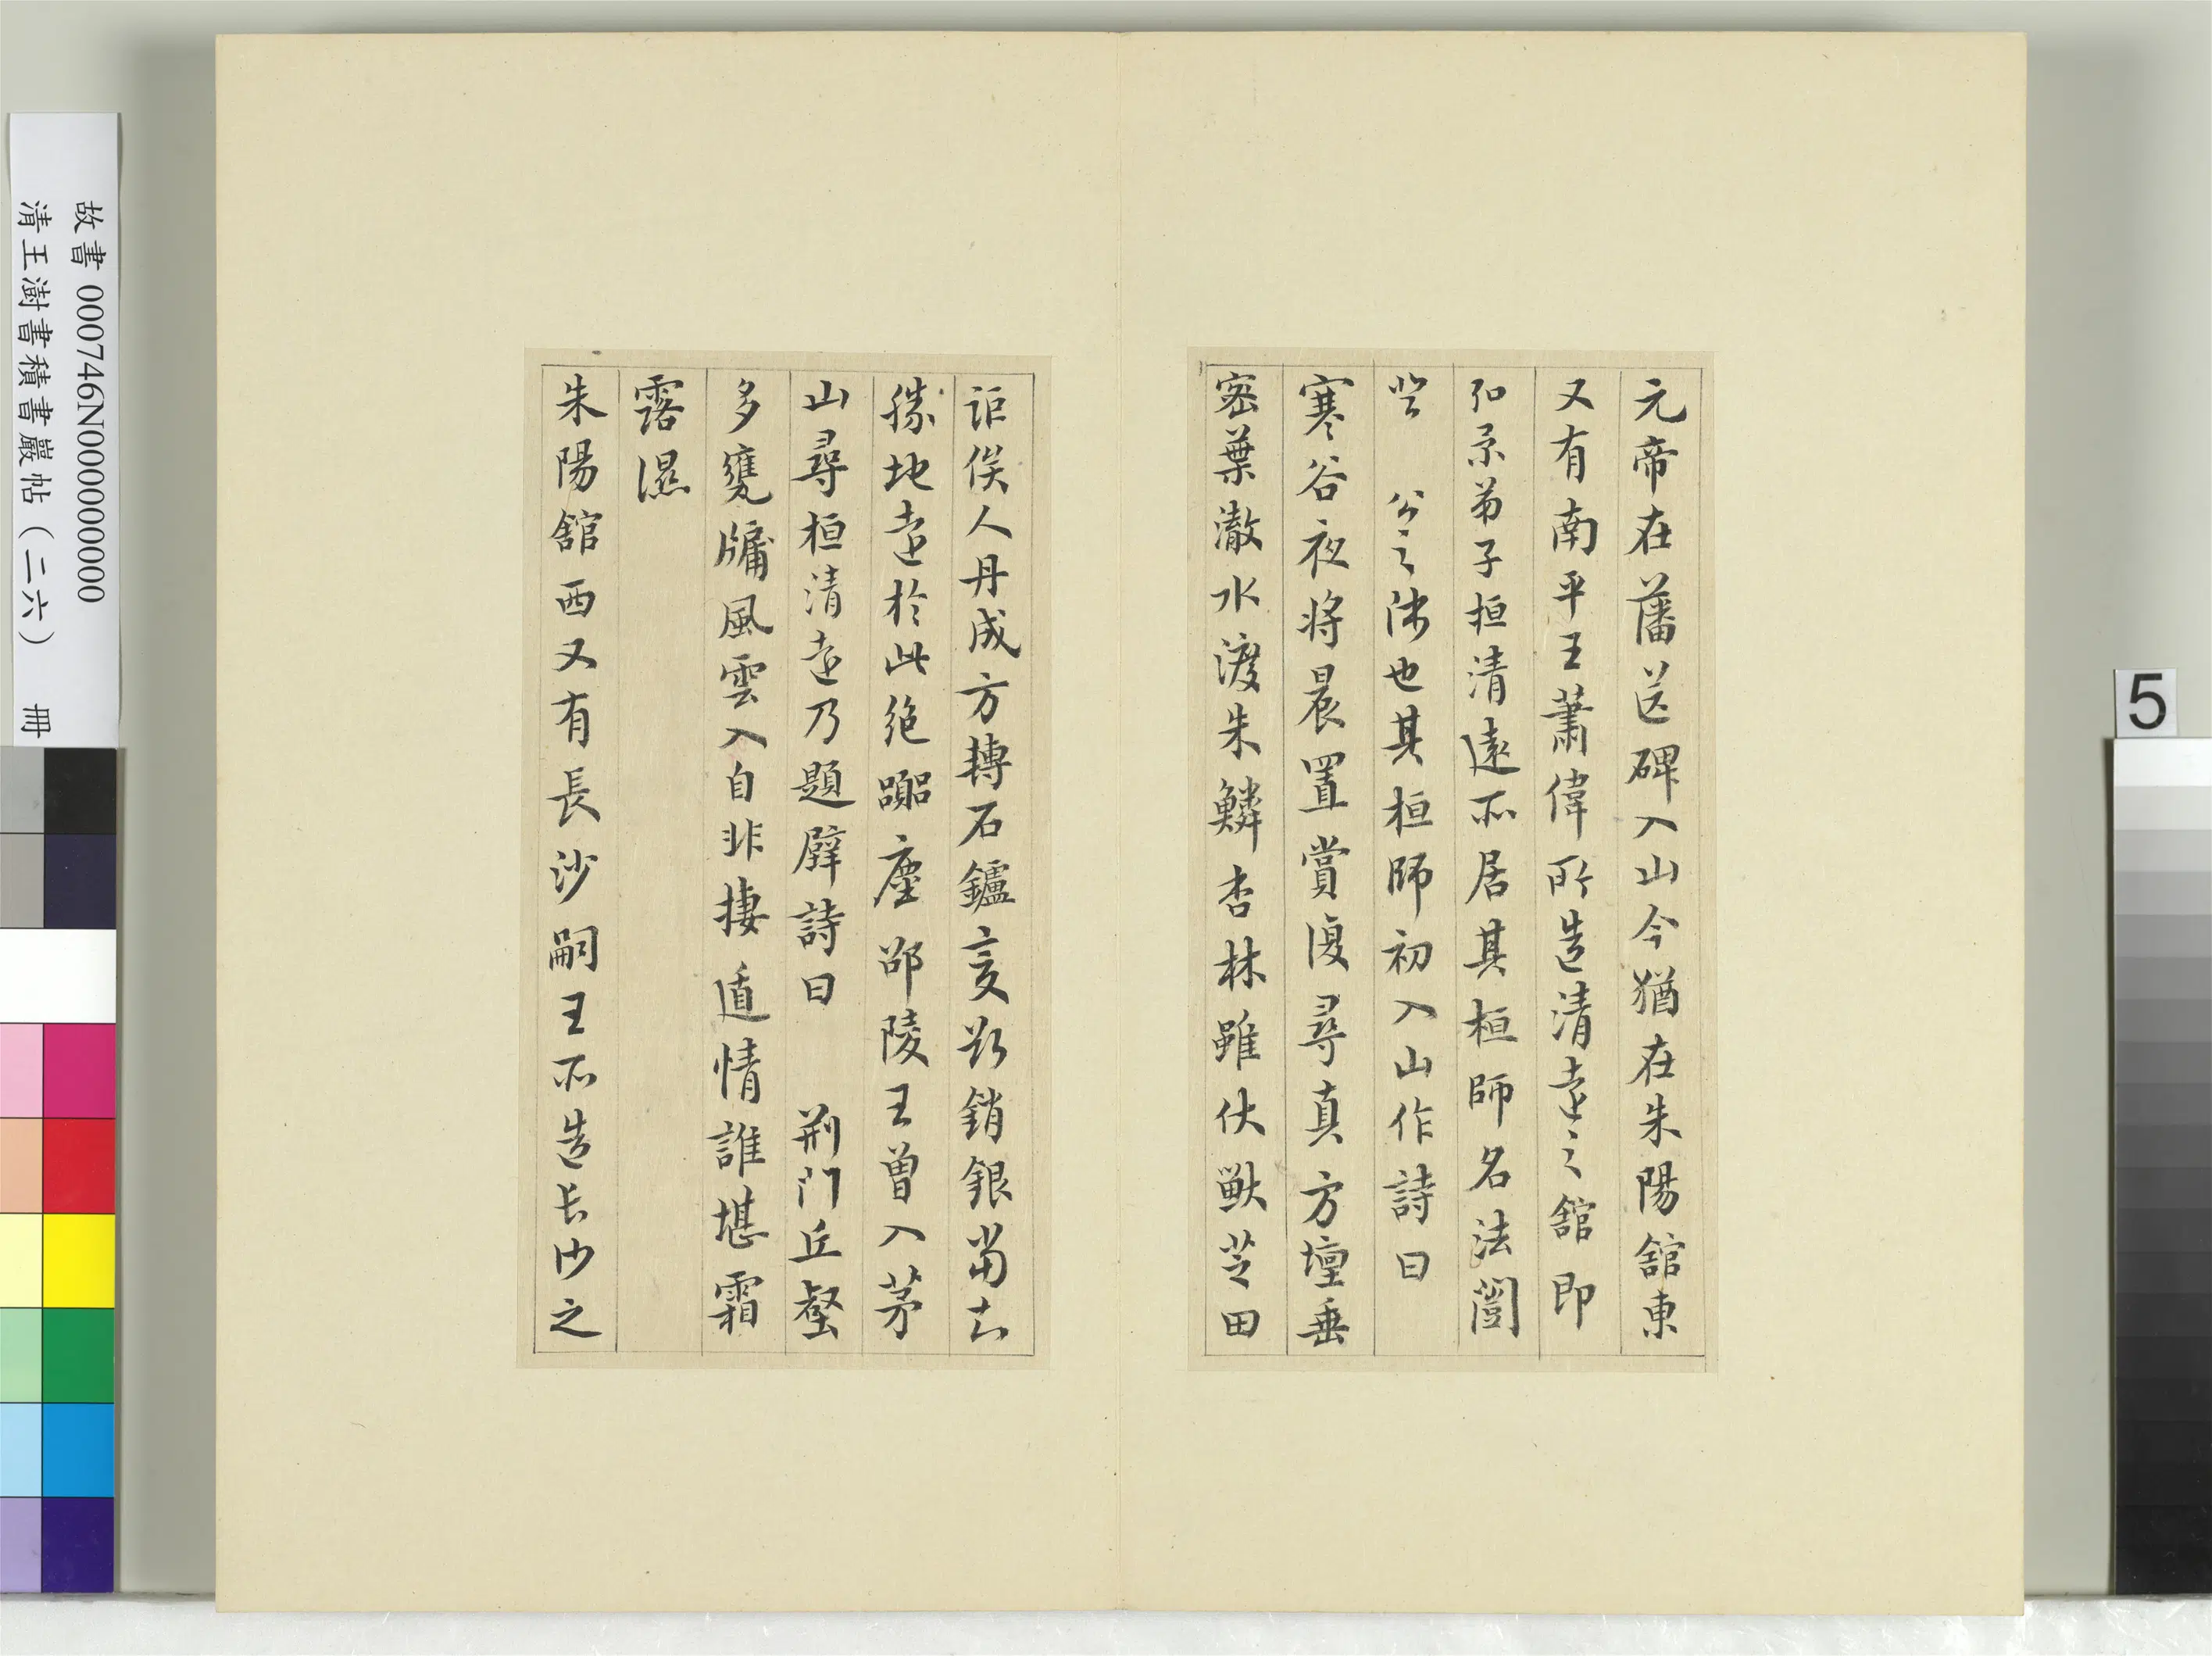 元帝在藩送碑入山今猶在朱陽館東
又有南平王蕭偉所造清遠之館即
弘景弟子桓清遠所居其桓師名法闓
公之師也其桓師初入山作詩曰
寒谷夜將晨置賞復尋真方壇垂
密葉澈水渡朱鱗杏林雖伏獸芝田
詎俟人丹成方轉石鑪變欲銷銀當去
勝地遠於此絕囂塵邵陵王曾入茅
山尋桓清遠乃題壁詩曰 荊門丘壑
多甕牖風雲入自非捿遁情誰堪霜
露濕
朱陽館西又有長沙嗣王所造長沙之
故書 000746N000000000
清王澍書積書巖帖（二六） 冊
5